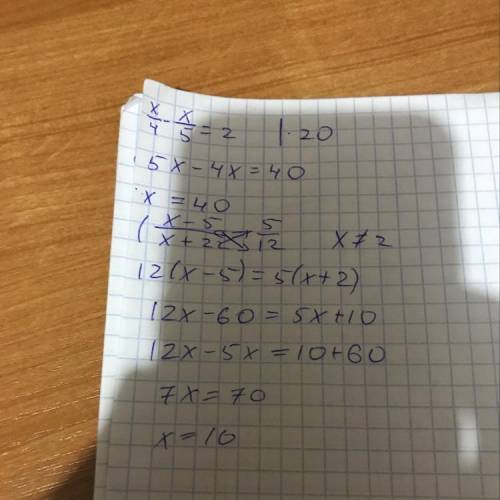 x/4 - x/5 = 2 | · 20
5x - 4x = 40
x = 40
(x - 5)/(x + 2) = 5/12 x ≠ 2
12(x - 5) = 5(x + 2)
12x - 60 = 5x + 10
12x - 5x = 10 + 60
7x = 70
x = 10